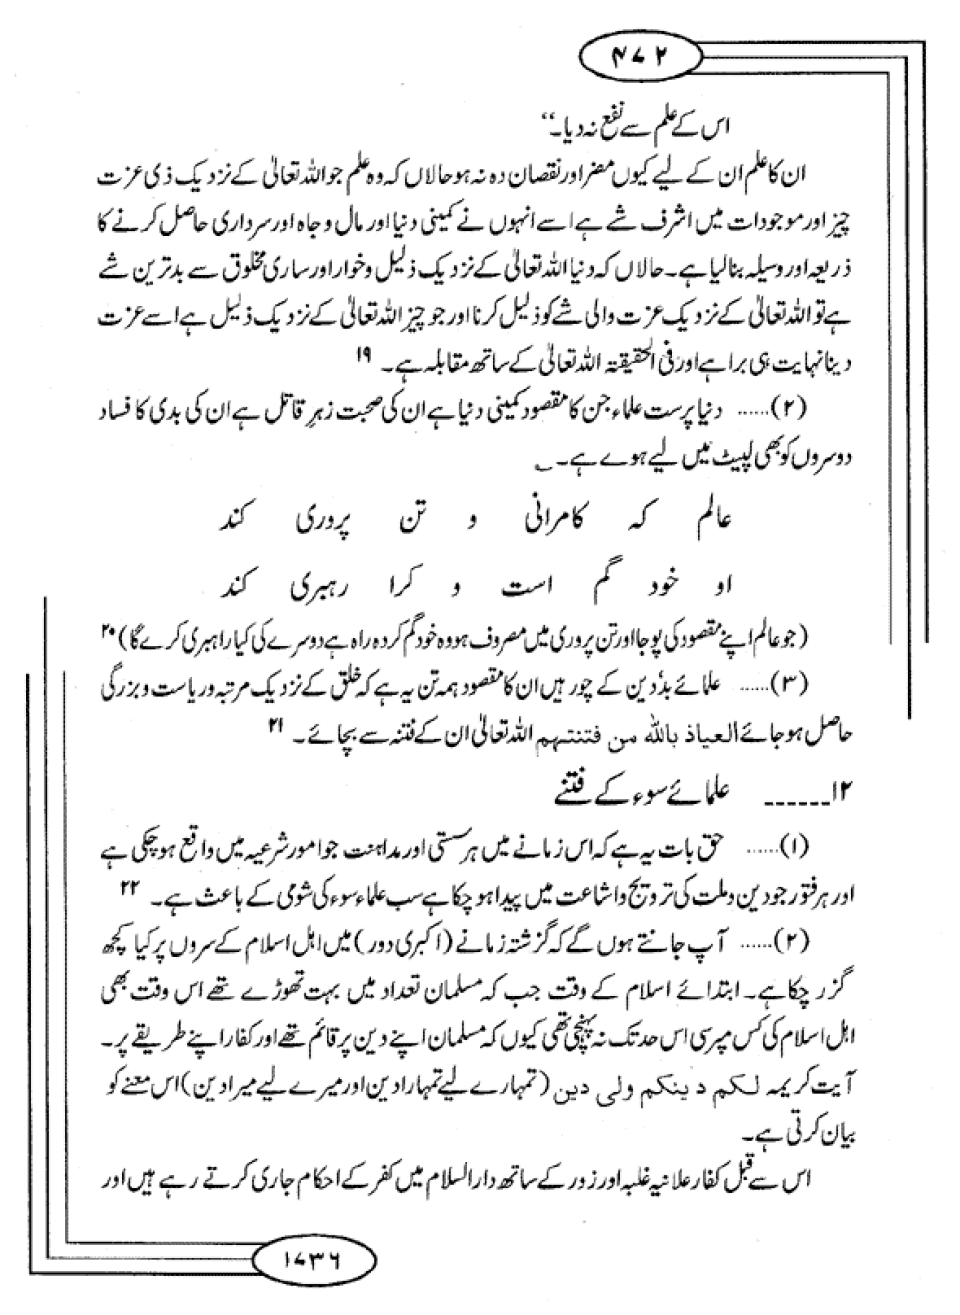 ۴۷۲
اس کے علم سے نفع نہ دیا۔‘‘
ان کا علم ان کے لیے کیوں مضر اور نقصان دہ نہ ہو حالاں کہ وہ علم جو اللہ تعالیٰ کے نزدیک ذی عزت
چیز اور موجودات میں اشرف شے ہے اسے انہوں نے کمینی دنیا اور مال و جاہ اور سرداری حاصل کرنے کا
ذریعہ اور وسیلہ بنا لیا ہے۔ حالاں کہ دنیا اللہ تعالیٰ کے نزدیک ذلیل و خوار اور ساری مخلوق سے بدترین شے
ہے تو اللہ تعالیٰ کے نزدیک عزت والی شے کو ذلیل کرنا اور جو چیز اللہ تعالیٰ کے نزدیک ذلیل ہے اسے عزت
دینا نہایت ہی برا ہے اور فی الحقیقتہ اللہ تعالیٰ کے ساتھ مقابلہ ہے۔ ۱۹
(۲)...... دنیا پرست علماء جن کا مقصود کمینی دنیا ہے ان کی صحبت زہرِ قاتل ہے ان کی بدی کا فساد
دوسروں کو بھی لپیٹ میں لیے ہوے ہے۔ ؂
عالم کہ کامرانی و تن پروری کند
او خود گم است و کرا رہبری کند
(جو عالم اپنے مقصود کی پوجا اور تن پروری میں مصروف ہو وہ خود گم کردہ راہ ہے دوسرے کی کیا راہبری کرے گا) ۲۰
(۳)...... علمائے بد دین کے چور ہیں ان کا مقصود ہمہ تن یہ ہے کہ خلق کے نزدیک مرتبہ و ریاست و بزرگی
حاصل ہو جائے العیاذ باللہ من فتنتہم اللہ تعالیٰ ان کے فتنہ سے بچائے۔ ۲۱
۱۲------ علمائے سوء کے فتنے
(۱)...... حق بات یہ ہے کہ اس زمانے میں ہر سستی اور مداہنت جو امور شرعیہ میں واقع ہو چکی ہے
اور ہر فتور جو دین و ملت کی ترویج و اشاعت میں پیدا ہو چکا ہے سب علماء سوء کی شومی کے باعث ہے۔ ۲۲
(۲)...... آپ جانتے ہوں گے کہ گزشتہ زمانے (اکبری دور) میں اہل اسلام کے سروں پر کیا کچھ
گزر چکا ہے۔ ابتدائے اسلام کے وقت جب کہ مسلمان تعداد میں بہت تھوڑے تھے اس وقت بھی
اہل اسلام کی کس مپرسی اس حد تک نہ پہنچی تھی کیوں کہ مسلمان اپنے دین پر قائم تھے اور کفار اپنے طریقے پر۔
آیت کریمہ لکم دینکم ولی دین (تمہارے لیے تمہارا دین اور میرے لیے میرا دین) اس معنے کو
بیان کرتی ہے۔
اس سے قبل کفار علانیہ غلبہ اور زور کے ساتھ دارالسلام میں کفر کے احکام جاری کرتے رہے ہیں اور
۱۷۳۶